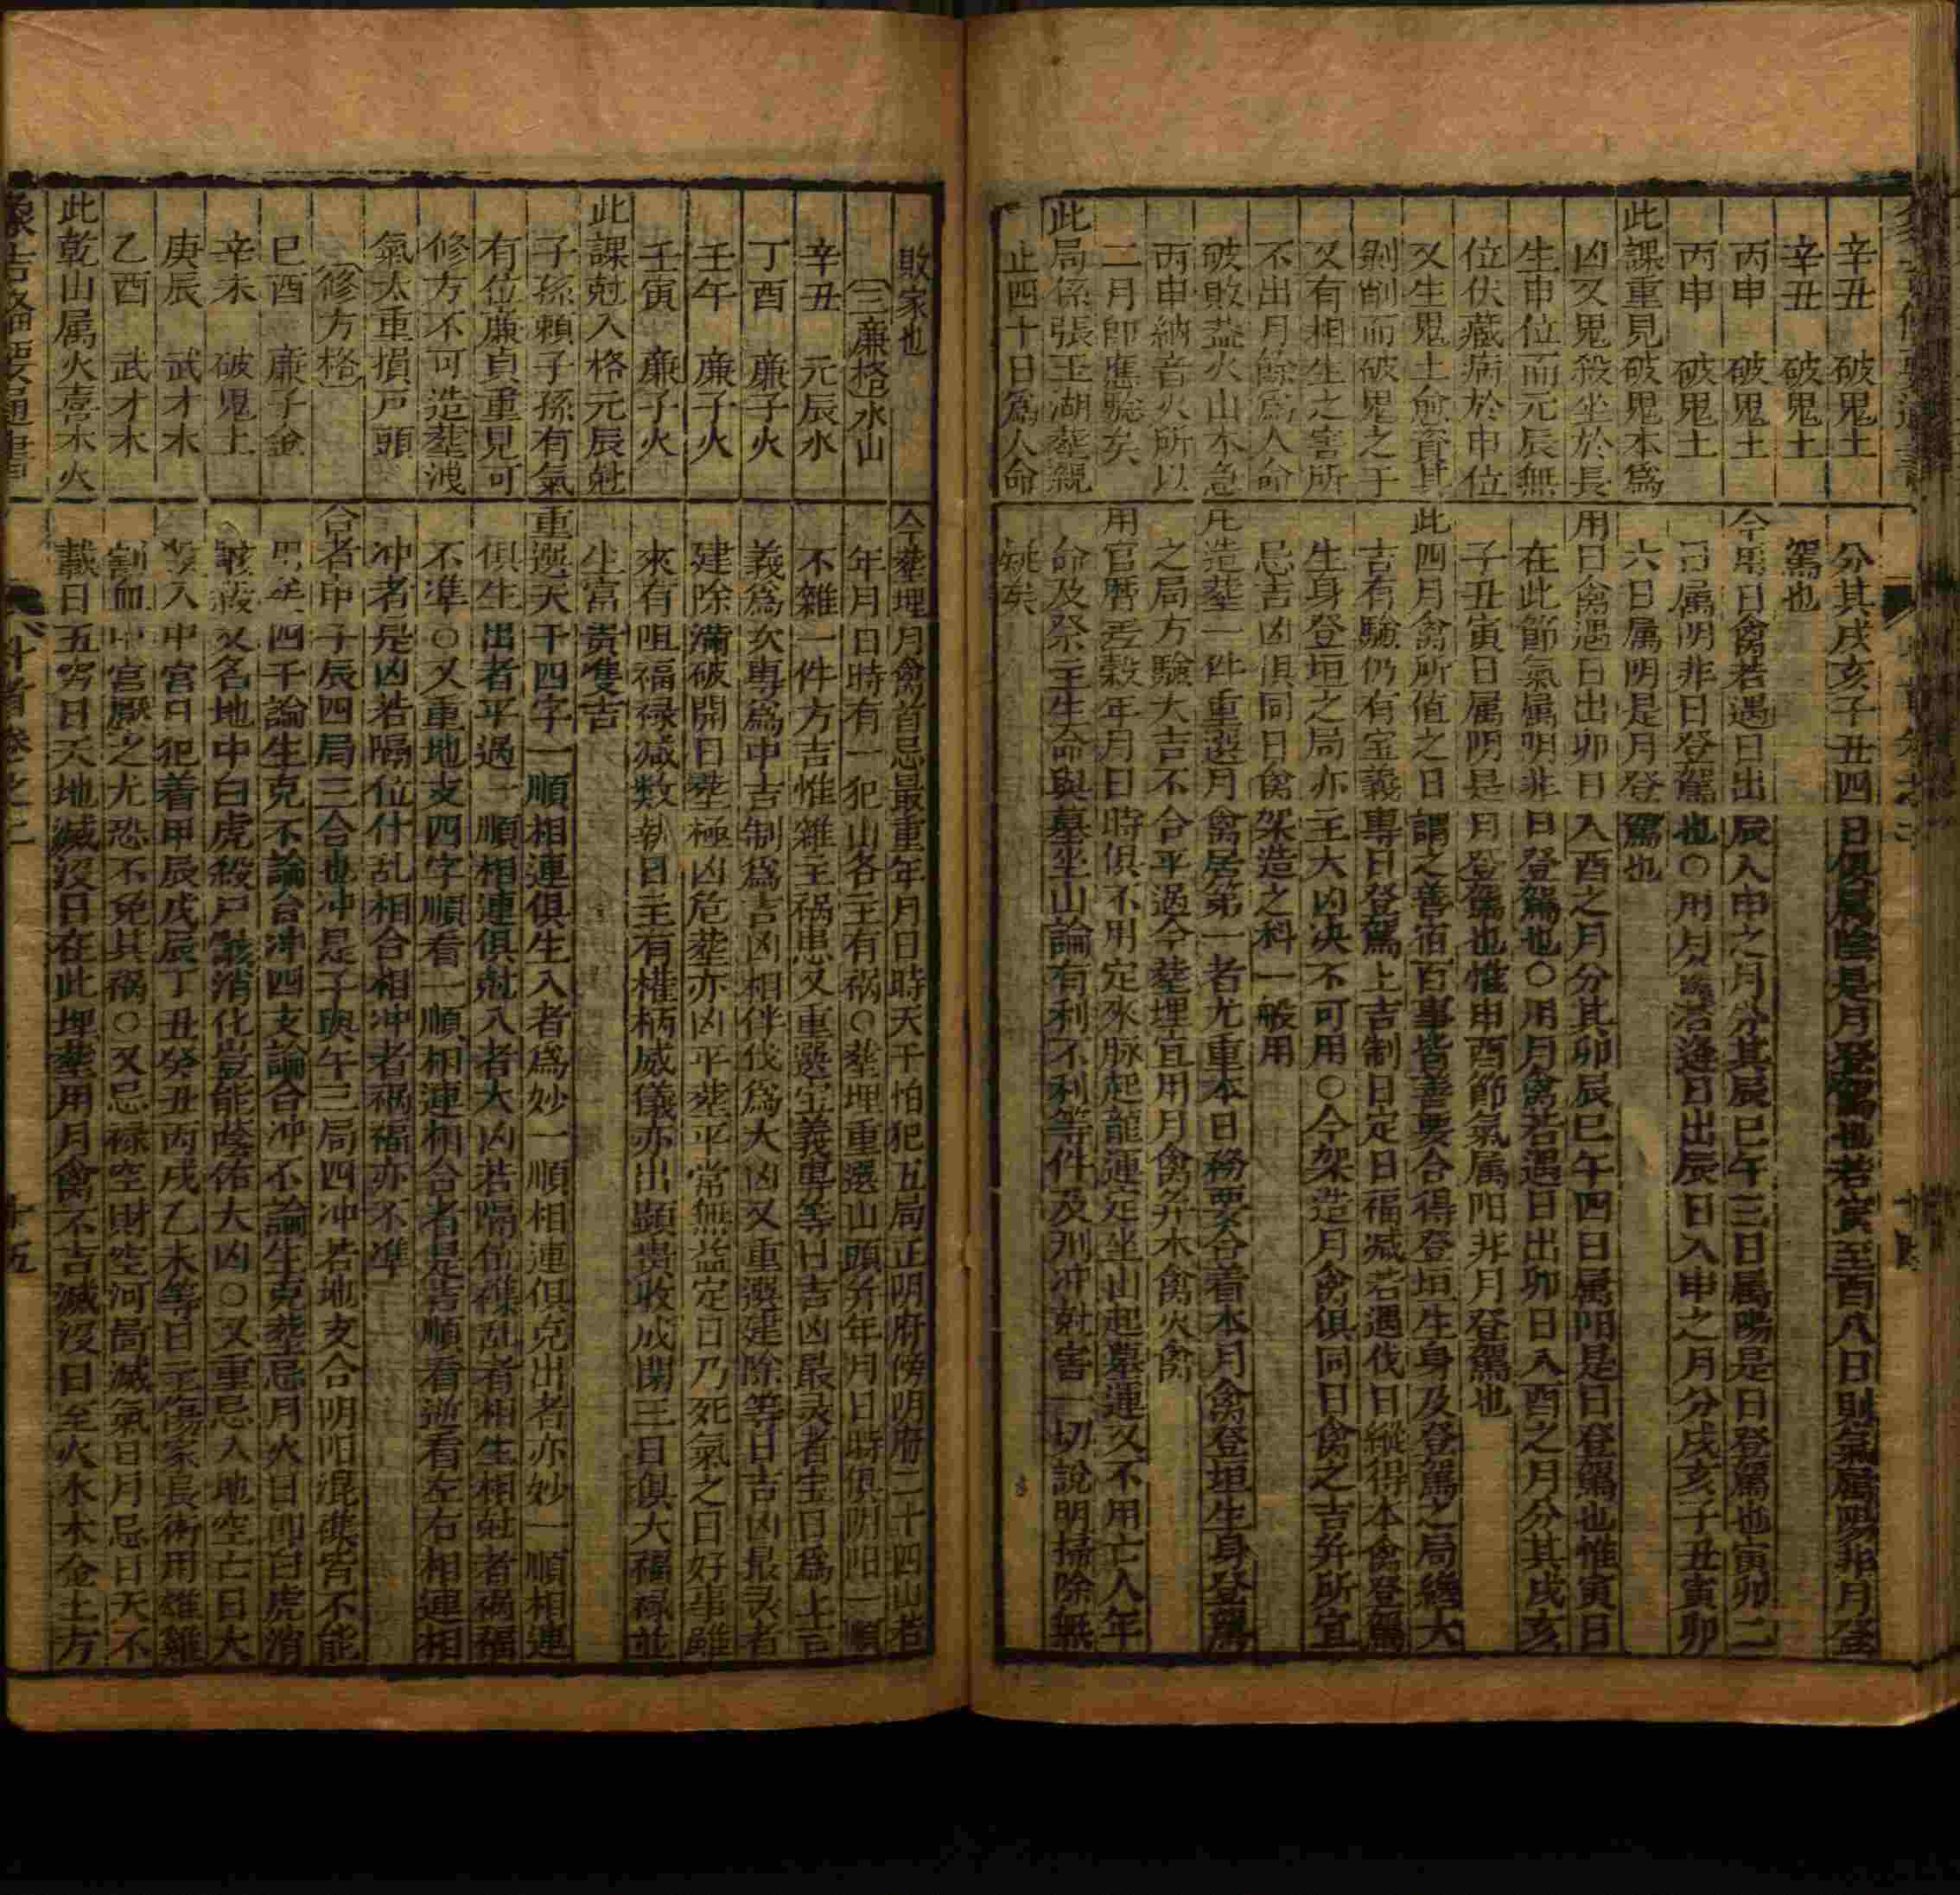 辛丑　破鬼土
辛丑　破鬼土
丙申　破鬼土
丙申　破鬼土
此課重見破鬼本爲
凶又鬼殺坐於長
生申位而元辰無
位伏藏病於申位
又生鬼土愈資其
剝削而破鬼之于
又有相生之害所
不出月餘爲人命
破敗蓋火山本急
丙申納音火所以
二月即應驗矣
此局係張玉湖塟親
止四十日爲人命
分其戌亥子丑四日俱属陰是月登駕也若寅至酉八日則氣属陽非月登
駕也
今用日禽若遇日出辰入申之月分其辰巳午三日属陽是日登駕也寅卯二
日属阴非日登駕也○用月禽若逢日出辰日入申之月分戌亥子丑寅卯
六日属阴是月登駕也
用日禽遇日出卯日入酉之月分其卯辰巳午四日属阳是日登駕也惟寅日
在此節氣属明非日登駕也○用月禽若遇日出卯日入酉之月分其戌亥
子丑寅日属阴是月登駕也惟申酉節氣属阳非月登駕也
此四月禽所值之日謂之善宿百事皆善要合得登垣生身及登駕之局緫大
吉有驗仍有宝義專日登駕上吉制日定日福减若遇伐日縱得本禽登駕
生身登垣之局亦主大凶决不可用○今架造月禽俱同日禽之吉并所宜
忌吉凶俱同日禽架造之科一般用
凡造塟一件重選月禽居第一者尤重本日務要合着本月禽登垣生身登駕
之局方驗大吉不合平過今塟埋宜用月禽并木禽火禽
用官曆丟殺年月日時俱不用定來脉起龍運定坐山起墓運又不用亡人年
命及祭主生命與墓坐山論有利不利等件及刑冲尅害一切說明掃除無
姚矣
敗家也
（三廉格）水山
辛丑　元辰水
丁酉　廉子火
壬午　廉子火
壬寅　廉子火
此課尅入格元辰尅
子孫賴子孫有氣
有位廉貞重見可
修方不可造塟洩
氣太重損戸頭
（修方格）
巳酉　廉子金
辛未　破鬼土
庚辰　武才木
乙酉　武才木
此乾山属火喜木火
今塟埋月禽首忌最重年月日時天干怕犯五局正阴府傍阴府二十四山若
年月日時有一犯山各主有禍○塟埋重選山頭并年月日時俱阴阳一順
不雜一件方吉惟雜主禍患又重選宝義專等日吉凶最灵者宝日爲上吉
義爲次專爲中吉制爲吉凶相伴伐爲大凶又重選建除等日吉凶最灵者
建除滿破開日塟極凶危塟亦凶平塟平常無益定日乃死氣之日好事雖
來有咀福禄减数執日主有權柄威儀亦出顕贵收成閉三日俱大福禄並
生富貴隻吉
重選天干四字一順相連俱生入者爲妙一順相連俱克出者亦妙一順相連
俱生出者平過一順相連俱尅入者大凶若隔位襍乱者相生相尅者禍福
不凖○又重地支四字順看一順相連相合者是吉順看逝看左右相連相
冲者是凶若隔位什乱相合相冲者禍福亦不凖
合者申子辰四局三合也冲是子與午三局四冲若地支合阴阳混襍皆不能
四千論生克不論合冲四支論合冲不論生克塟忌月火日即白虎消
骸殺又名地中白虎殺尸骸消化豈能蔭佑大凶○又重忌入地空亡日大
入中宮日犯着甲辰戊辰丁丑癸丑丙戌乙未等日主傷家長術用雄雞
割血中宮厭之尤恐不免其禍○又忌禄空財空河啇滅氣日月忌日天不
載日五穷日天地滅没日在此埋塟用月禽不吉滅没日至火水木金土方